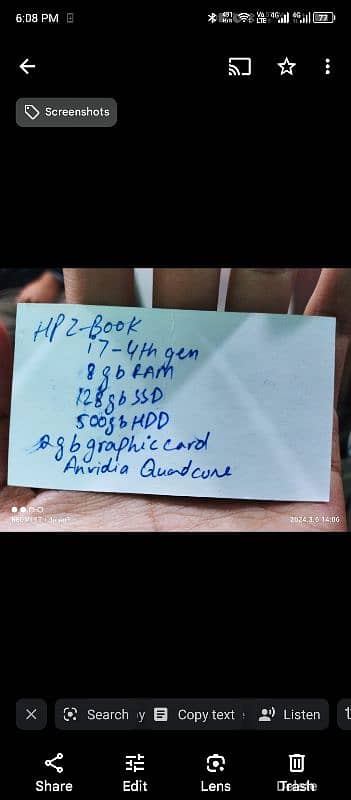 6:08 PM
Vo 4G 4G 77
LTE
Screenshots
HP Z-BOOK
i7-4th gen
8gb RAM
128gb SSD
500gb HDD
2gb graphic card
Anvidia Quadcore
2024.3.6 14:06
Search Copy text Listen
Share Edit Lens